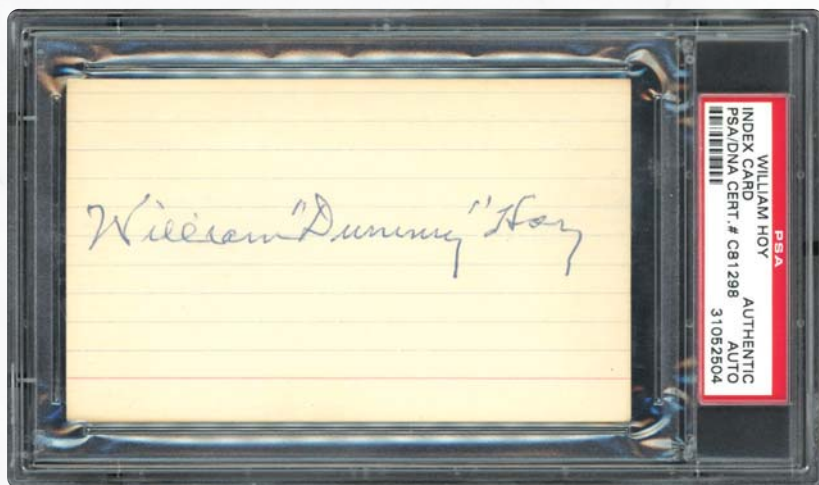 William "Dummy" Hoy
PSA
WILLIAM HOY
INDEX CARD AUTHENTIC
PSA/DNA CERT.# C81298 AUTO
31052504